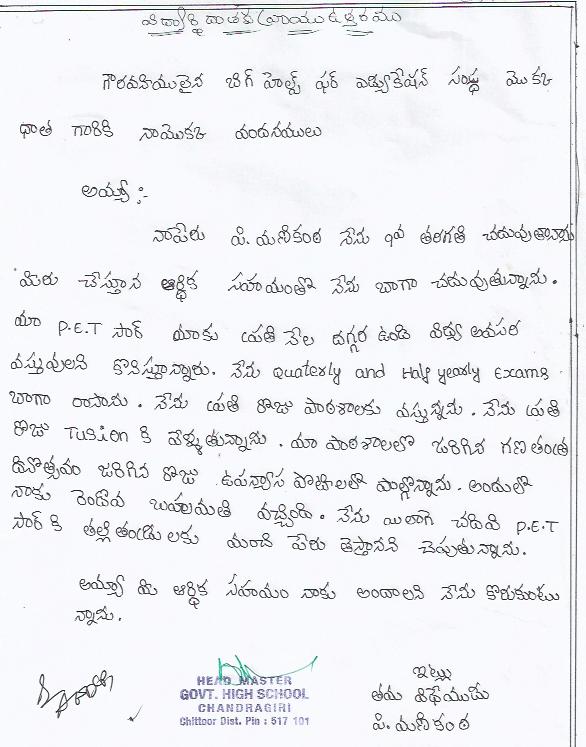 విద్యార్థి దాతకు వ్రాయు ఉత్తరము
గౌరవనీయులైన బిగ్ హెల్ప్ ఫర్ ఎడ్యుకేషన్ సంస్థ యొక్క
ధాత గారికి నాయొక్క వందనములు
అయ్యా :-
నాపేరు పి. మణికంఠ నేను 9వ తరగతి చదువుతున్నాను
మీరు చేస్తూన ఆర్థిక సహాయంతో నేను బాగా చదువుతున్నాను.
మా P.E.T సార్ మాకు ప్రతి నెల దగ్గర ఉండి నిత్య అవసర
వస్తువులని కొనిస్తూన్నారు. నేను Quaterly and Half yearly Exams
బాగా రాసాను. నేను ప్రతి రోజు పాఠశాలకు వస్తున్నాను. నేను ప్రతి
రోజు Tusion కి వెళ్ళుతున్నాను. మా పాఠశాలలో జరిగిన గణతంత్ర
దినోత్సవం జరిగిన రోజు ఉపన్యాస పోటీలలో పాల్గొన్నాను. అందులో
నాకు రెండోవ బహుమతి వచ్చింది. నేను యిలాగే చదివి P.E.T
సార్ కి తల్లి తండ్రులకు మంచి పేరు తెస్తానని చెపుతున్నాను.
అయ్యా మీ ఆర్థిక సహాయం నాకు అందాలని నేను కోరుకుంటు
న్నాను.
ఇట్లు
తమ విధేయుడు
పి. మణికంఠ
HEAD MASTER
GOVT. HIGH SCHOOL
CHANDRAGIRI
Chittoor Dist. Pin : 517 101